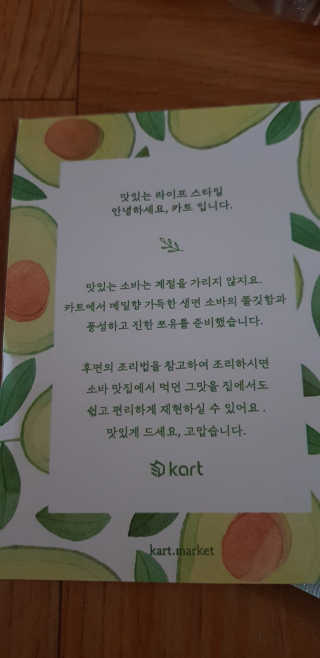 맛있는 라이프 스타일
안녕하세요, 카트 입니다.
맛있는 소바는 계절을 가리지 않지요.
카트에서 메밀향 가득한 생면 소바의 쫄깃함과
풍성하고 진한 쯔유를 준비했습니다.
후면의 조리법을 참고하여 조리하시면
소바 맛집에서 먹던 그맛을 집에서도
쉽고 편리하게 재현하실 수 있어요 .
맛있게 드세요, 고맙습니다.
kart
kart.market